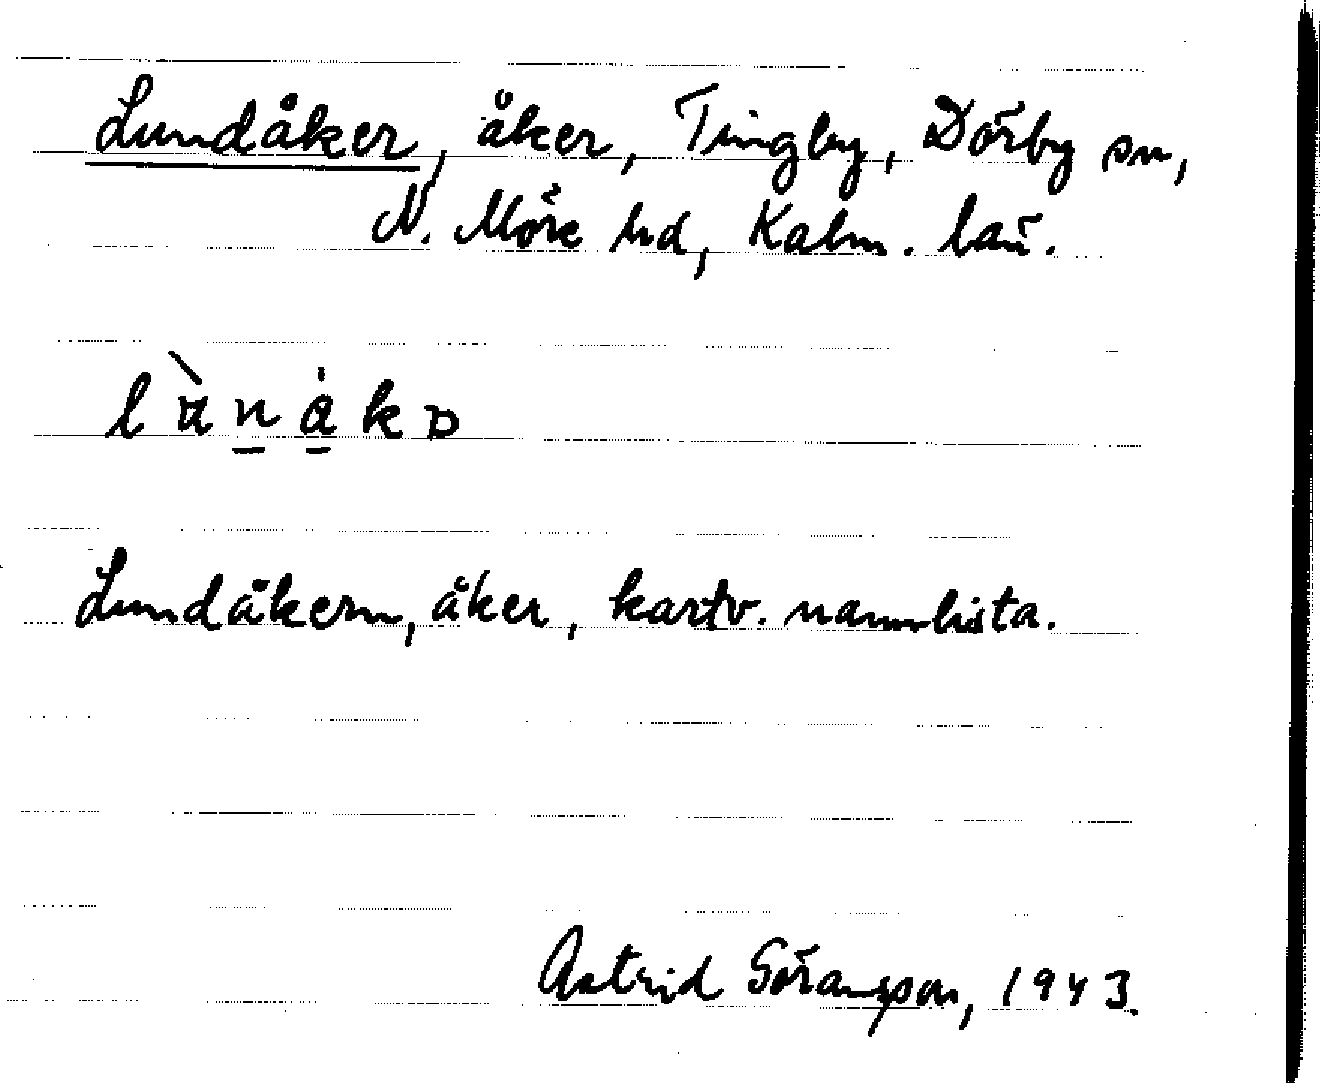 Lundåker, åker, Tingby, Dörby sn,
N. Möre hd, Kalm. län.
Lundåkern, åker, kartv. namnlista.
Astrid Göransson, 1943.